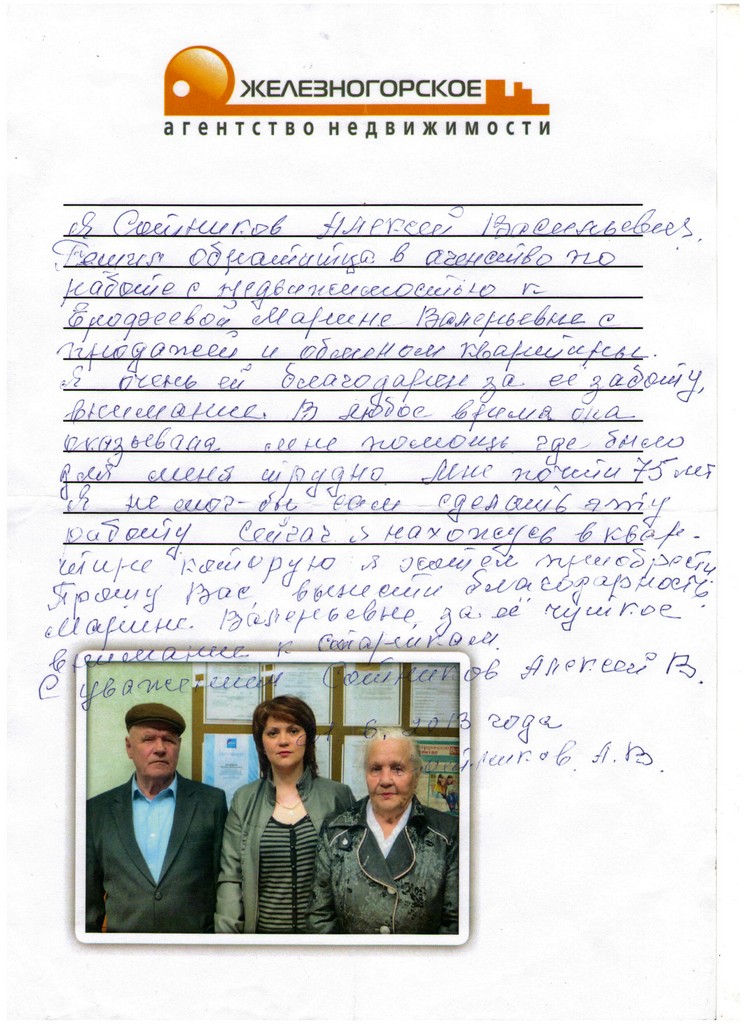 ЖЕЛЕЗНОГОРСКОЕ
агентство недвижимости
Я Сотников Алексей Васильевич.
Решил обратится в агенство по
работе с недвижимостью к
Ерофеевой Марине Валерьевне с
продажей и обменом квартиры.
Я очень ей благодарен за её заботу,
внимание. В любое время она
оказывала мне помощь где было
для меня трудно. Мне почти 75 лет
Я не смог-бы сам сделать эту
работу Сейчас я нахожусь в квар-
тире которую я хотел приобрести
Прошу Вас вынести благодарность
Марине Валерьевне за её чуткое
внимание к старикам.
С уважением Сотников Алексей В.
6. 2013 года
А.В.